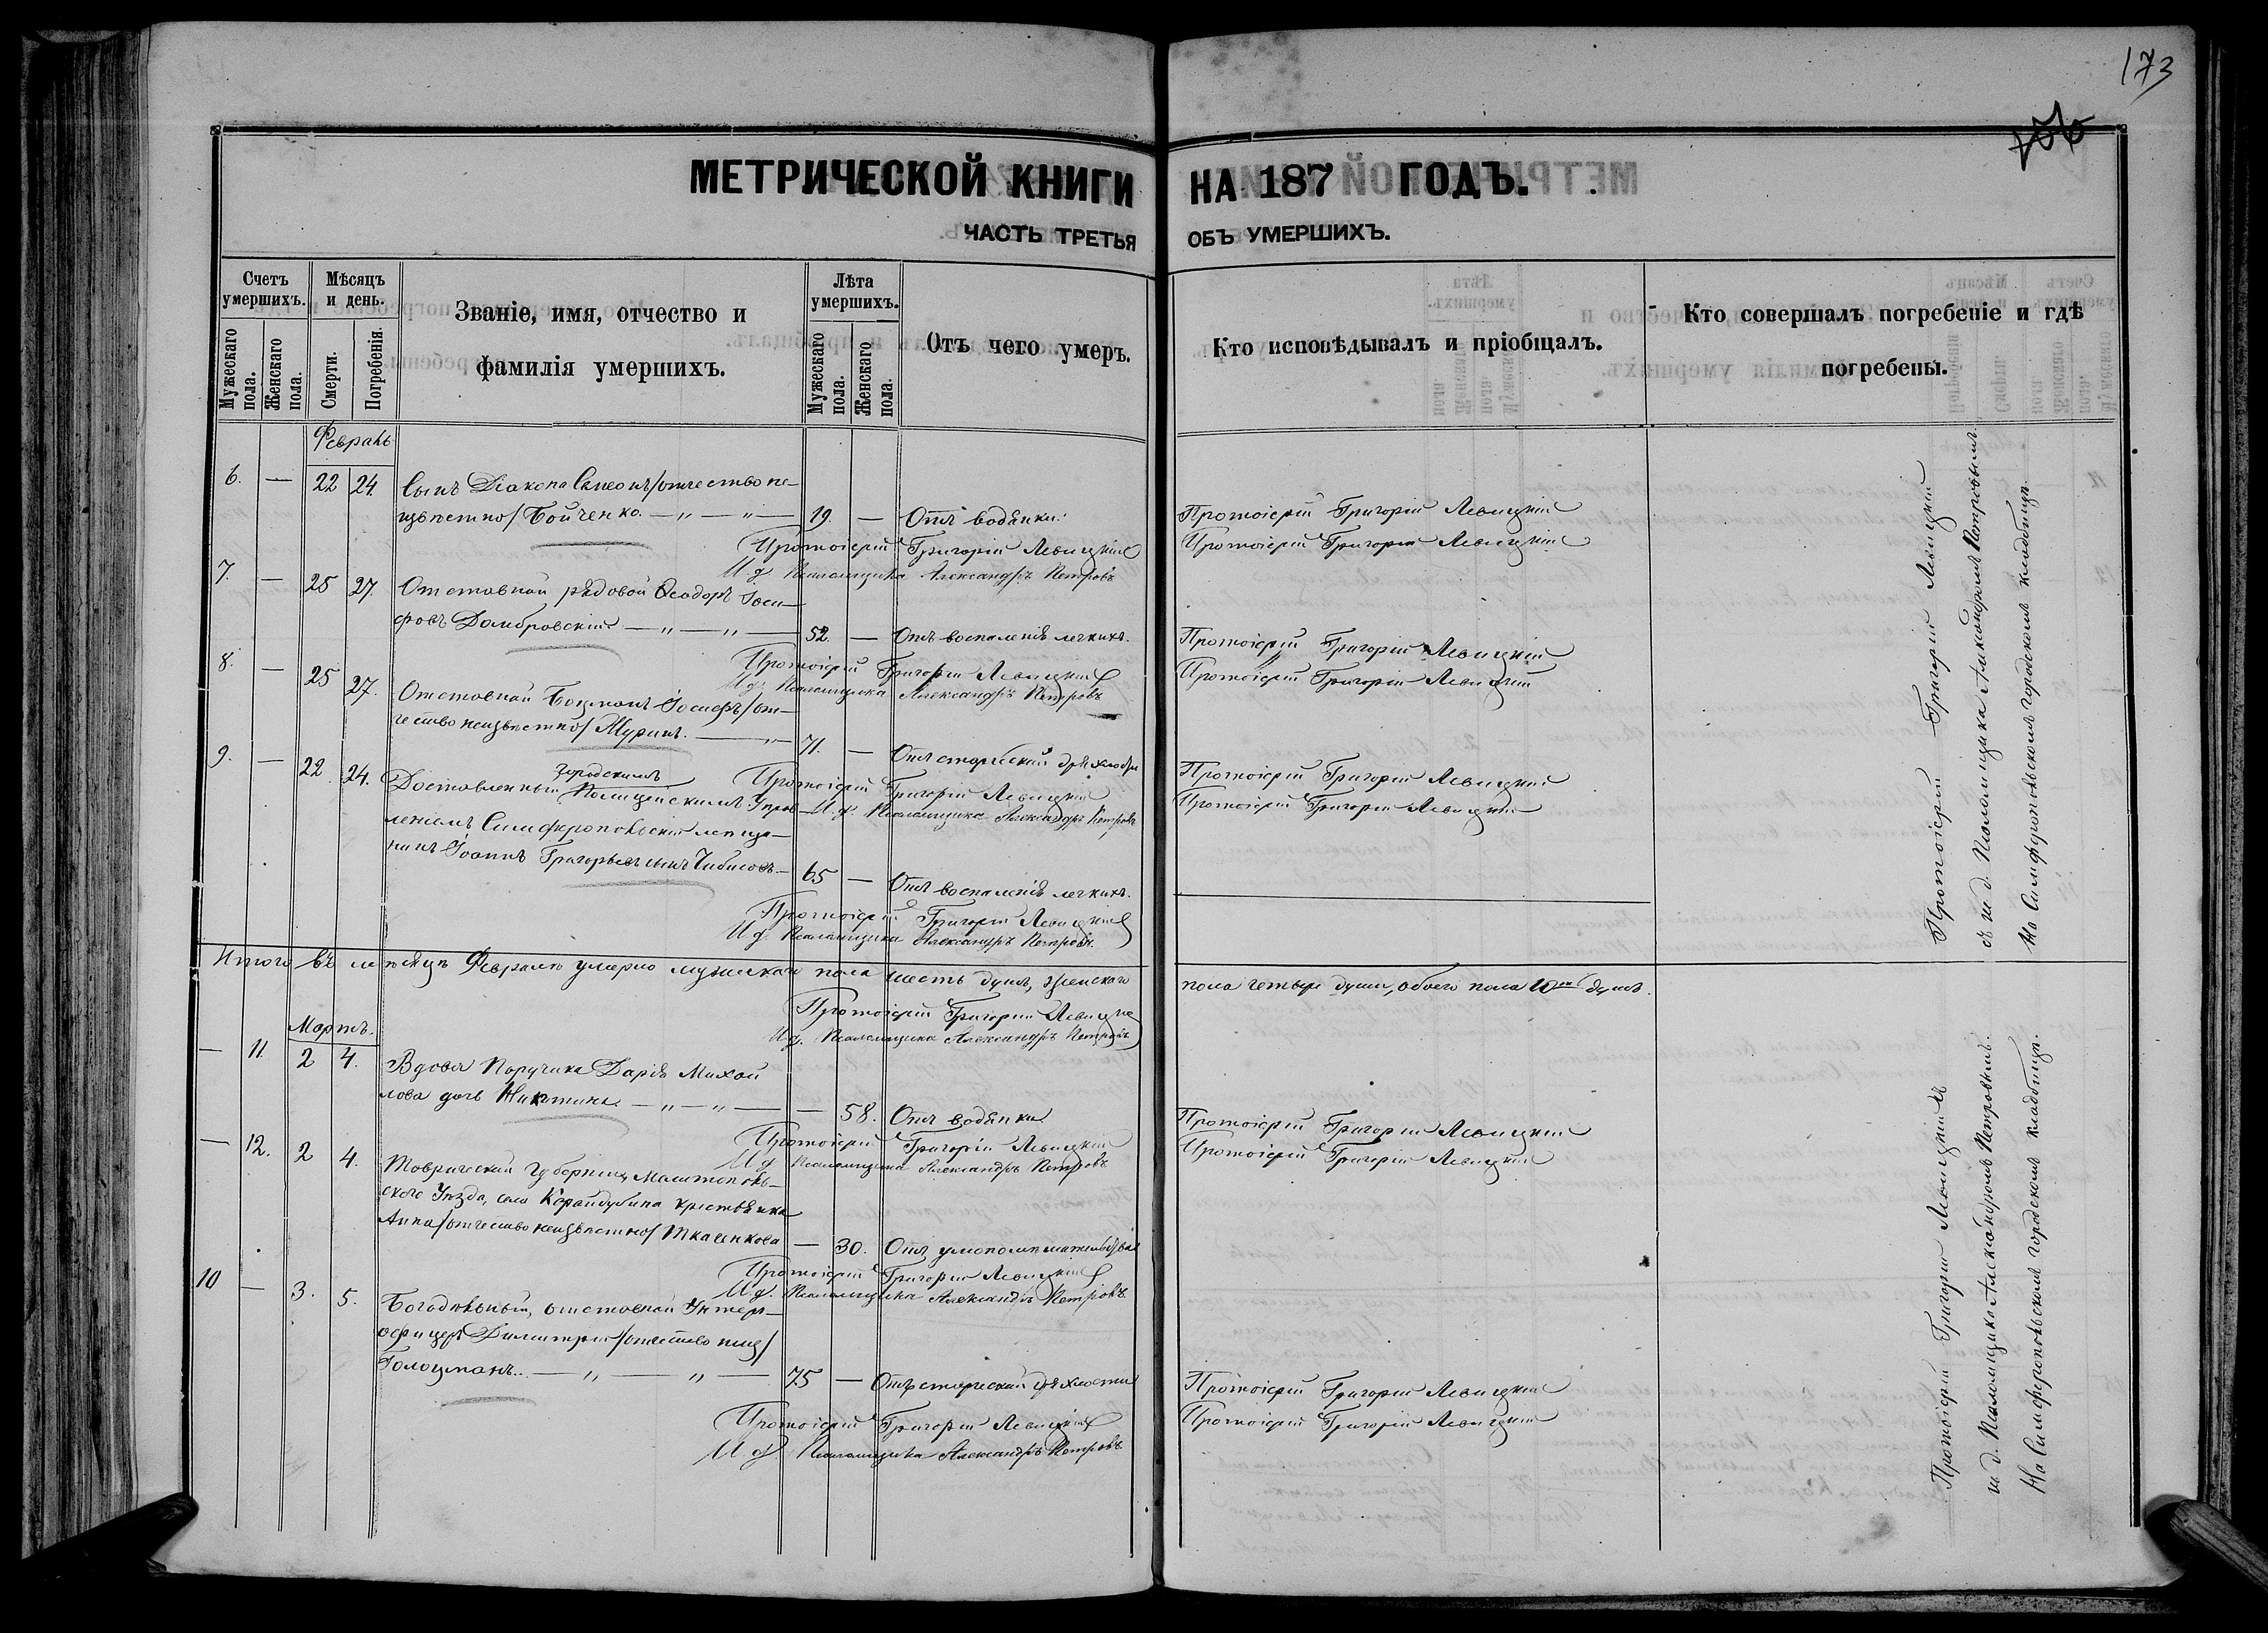 173
МЕТРИЧЕСКОЙ КНИГИ НА 187 ГОДЪ.
ЧАСТЬ ТРЕТЬЯ ОБЪ УМЕРШИХЪ.
Счетъ умершихъ.
Мужескаго пола.
Женскаго пола.
Мѣсяцъ и день.
Смерти.
Погребенія.
Званіе, имя, отчество и
фамилія умершихъ.
Лѣта умершихъ.
Мужескаго пола.
Женскаго пола.
Отъ чего умеръ.
Кто исповѣдывалъ и пріобщалъ.
Кто совершалъ погребеніе и гдѣ
погребены.
Февраль
6. — 22 24. Сынъ Діакона Симеонъ /отчество не-
извѣстно/ Бойченко. — „ — „ — 19. — Отъ водянки. Протоіерей Григорій Левицкій
Протоіерей Григорій Левицкій Протоіерей Григорій Левицкій
И. д. Псаломщика Александръ Петровъ
7. — 25 27. Отставной рядовой Ѳеодоръ Іоси-
фовъ Домбровскій — „ — „ — 52. — Отъ воспаленія легкихъ. Протоіерей Григорій Левицкій
Протоіерей Григорій Левицкій Протоіерей Григорій Левицкій
И. д. Псаломщика Александръ Петровъ
8. — 25 27. Отставной Боцманъ Іосифъ /от-
чество неизвѣстно/ Муринъ. — „ 71. — Отъ старческой дряхлости Протоіерей Григорій Левицкій
Протоіерей Григорій Левицкій Протоіерей Григорій Левицкій
И. д. Псаломщика Александръ Петровъ
9. — 22 24. Доставленный Городскимъ Полицейскимъ Управ-
леніемъ Симферопольскій мѣща-
нинъ Іоаннъ Григорьевъ сынъ Чибисовъ — 65 — Отъ воспаленія легкихъ.
Протоіерей Григорій Левицкій
И. д. Псаломщика Александръ Петровъ
Протоіерей Григорій Левицкій
съ и. д. Псаломщика Александромъ Петровымъ.
На Симферопольскомъ городскомъ кладбищѣ.
Итого въ мѣсяцѣ Февралѣ умерло мужескаго пола шесть душъ, женскаго пола четыре души, обоего пола 10ть душъ.
Протоіерей Григорій Левицкій
И. д. Псаломщика Александръ Петровъ
Мартъ.
— 11. 2 4. Вдова Поручика Дарія Михай
лова дочь Никитина — „ — „ — — 58. Отъ водянки Протоіерей Григорій Левицкій
Протоіерей Григорій Левицкій Протоіерей Григорій Левицкій
И. д. Псаломщика Александръ Петровъ
— 12. 2 4. Таврической Губерніи, Мелитополь-
скаго Уѣзда, села Карайдубина крестьянка
Анна /отчество неизвѣстно/ Ткаченкова — 30. Отъ умопомѣшательства
Протоіерей Григорій Левицкій
И. д. Псаломщика Александръ Петровъ
10 — 3. 5. Богодѣльный, отставной Унтеръ-
офицеръ Димитрій /отчество неиз/
Голоцманъ.. — „ — „ — 75 — Отъ старческой дряхлости Протоіерей Григорій Левицкій
Протоіерей Григорій Левицкій Протоіерей Григорій Левицкій
И. д. Псаломщика Александръ Петровъ
Протоіерей Григорій Левицкій съ
и. д. Псаломщика Александромъ Петровымъ.
На Симферопольскомъ городскомъ кладбищѣ.